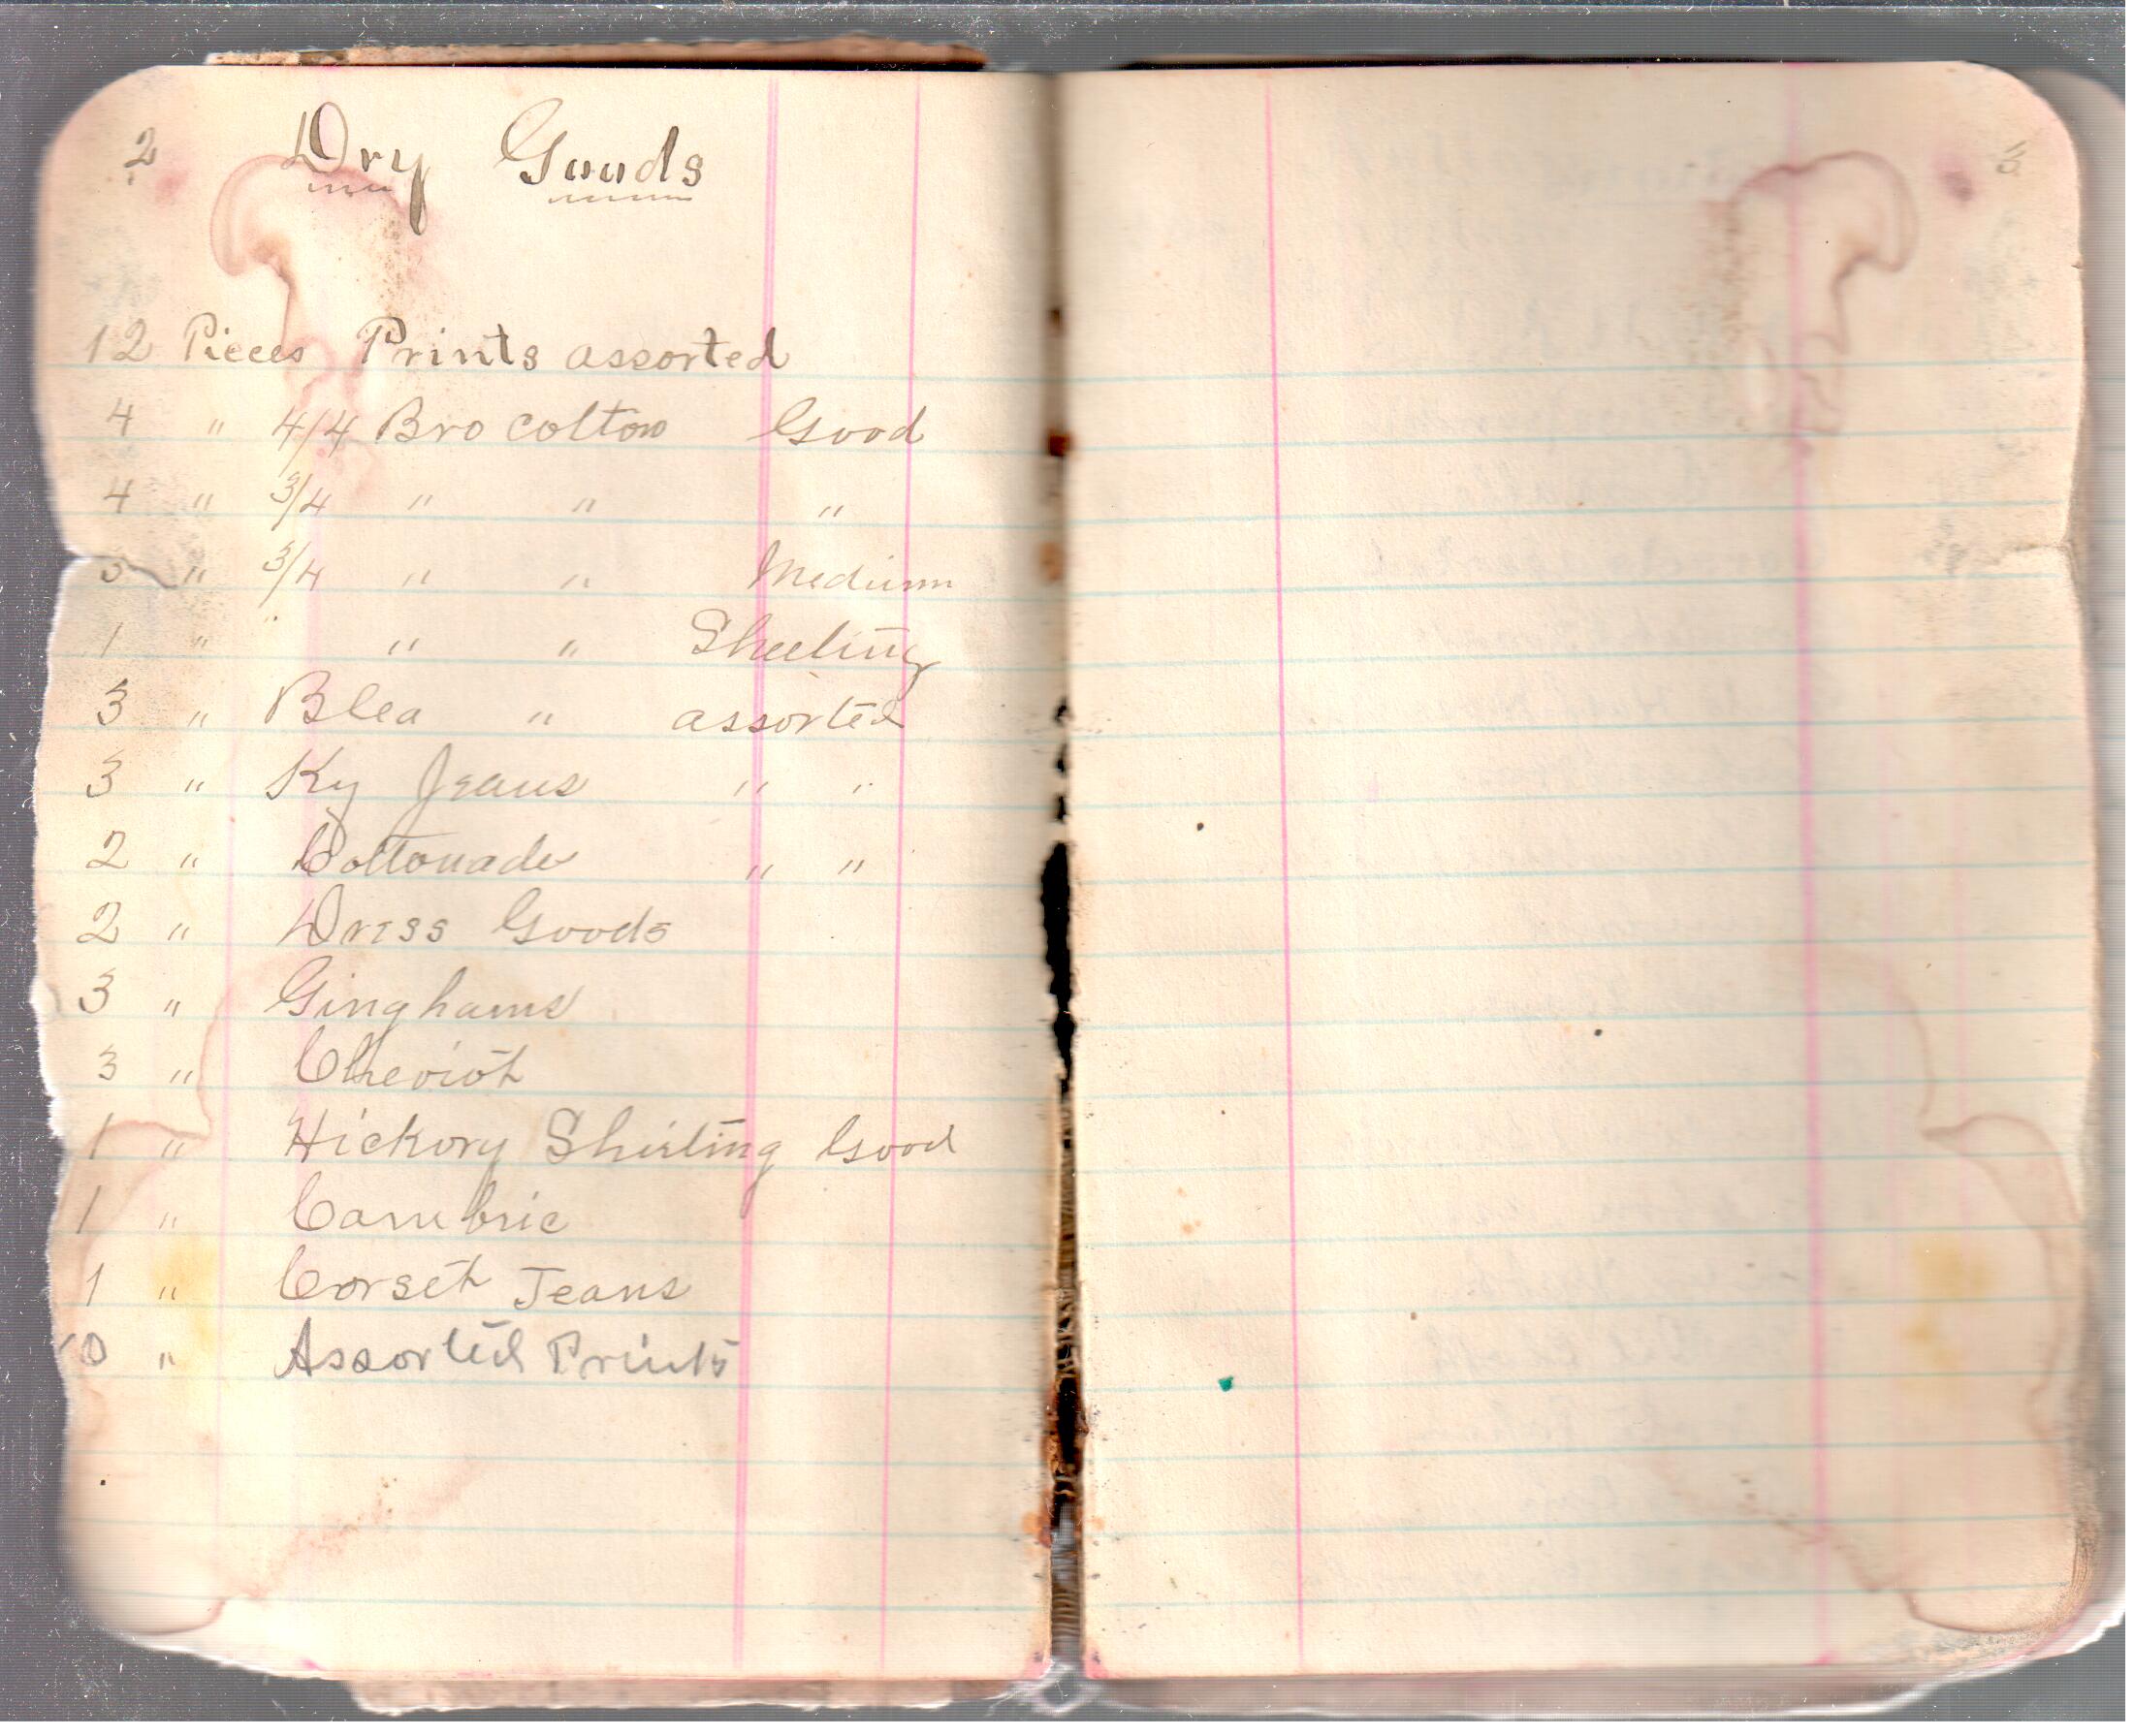 2 Dry Goods
12 Pieces Prints assorted
4 " 4/4 Bro cotton Good
4 " 3/4 " " "
5 " 3/4 " " Medium
1 " " " " Sheeting
3 " Blea " assorted
3 " Ky Jeans " "
2 " Cottonade " "
2 " Dress Goods
3 " Ginghams
3 " Cheviot
1 " Hickory Shirting Good
1 " Cambric
1 " Corset Jeans
10 " Assorted Prints